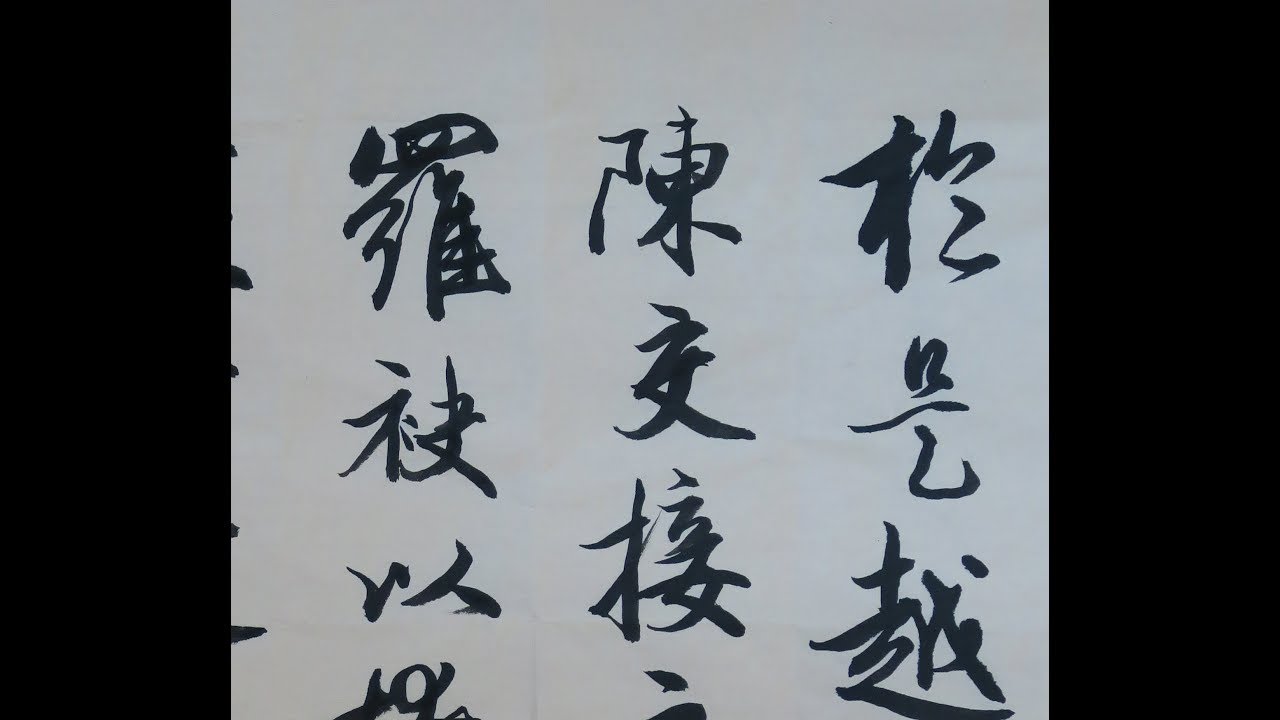 於是越
陳交接
羅袂以